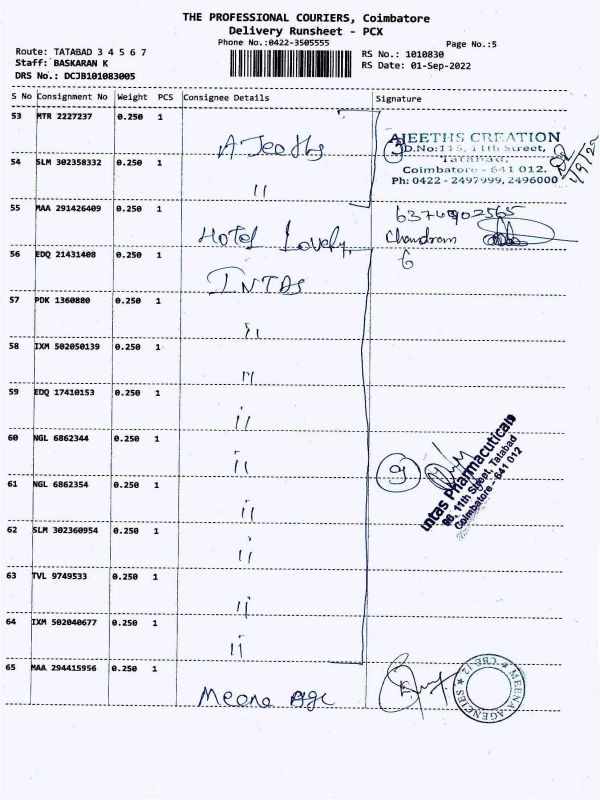 THE PROFESSIONAL COURIERS, Coimbatore
Delivery Runsheet - PCX
Phone No.:0422-3505555
Page No.:5
Route: TATABAD 3 4 5 6 7
Staff: BASKARAN K
DRS No.: DCJB101083005
RS No.: 1010830
RS Date: 01-Sep-2022
S No Consignment No Weight PCS Consignee Details Signature
53 MTR 2227237 0.250 1
AJeeths
AJEETHS CREATION
D.No:115, 11th Street,
Tatabad,
Coimbatore - 641 012.
Ph: 0422 - 2497999, 2496000
3
1/9/22
54 SLM 302358332 0.250 1
"
55 MAA 291426409 0.250 1
Hotel Lovely,
Chandram
56 EDQ 21431408 0.250 1
INTAS
6
57 PDK 1360880 0.250 1
"
58 IXM 502050139 0.250 1
"
59 EDQ 17410153 0.250 1
"
60 NGL 6862344 0.250 1
"
9
Intas Pharmaceuticals
86, 11th Street, Tatabad
Coimbatore - 641 012
61 NGL 6862354 0.250 1
"
62 SLM 302360954 0.250 1
"
63 TVL 9749533 0.250 1
"
64 IXM 502040677 0.250 1
"
65 MAA 294415956 0.250 1
Meena Age
MEENA AGENCIES ★ CBE-12 ★